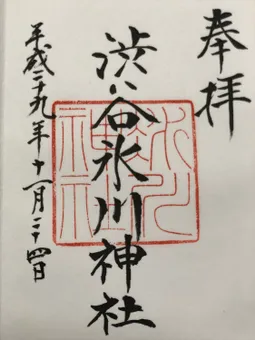 奉拝
渋谷氷川神社
平成二十九年十一月二十四日